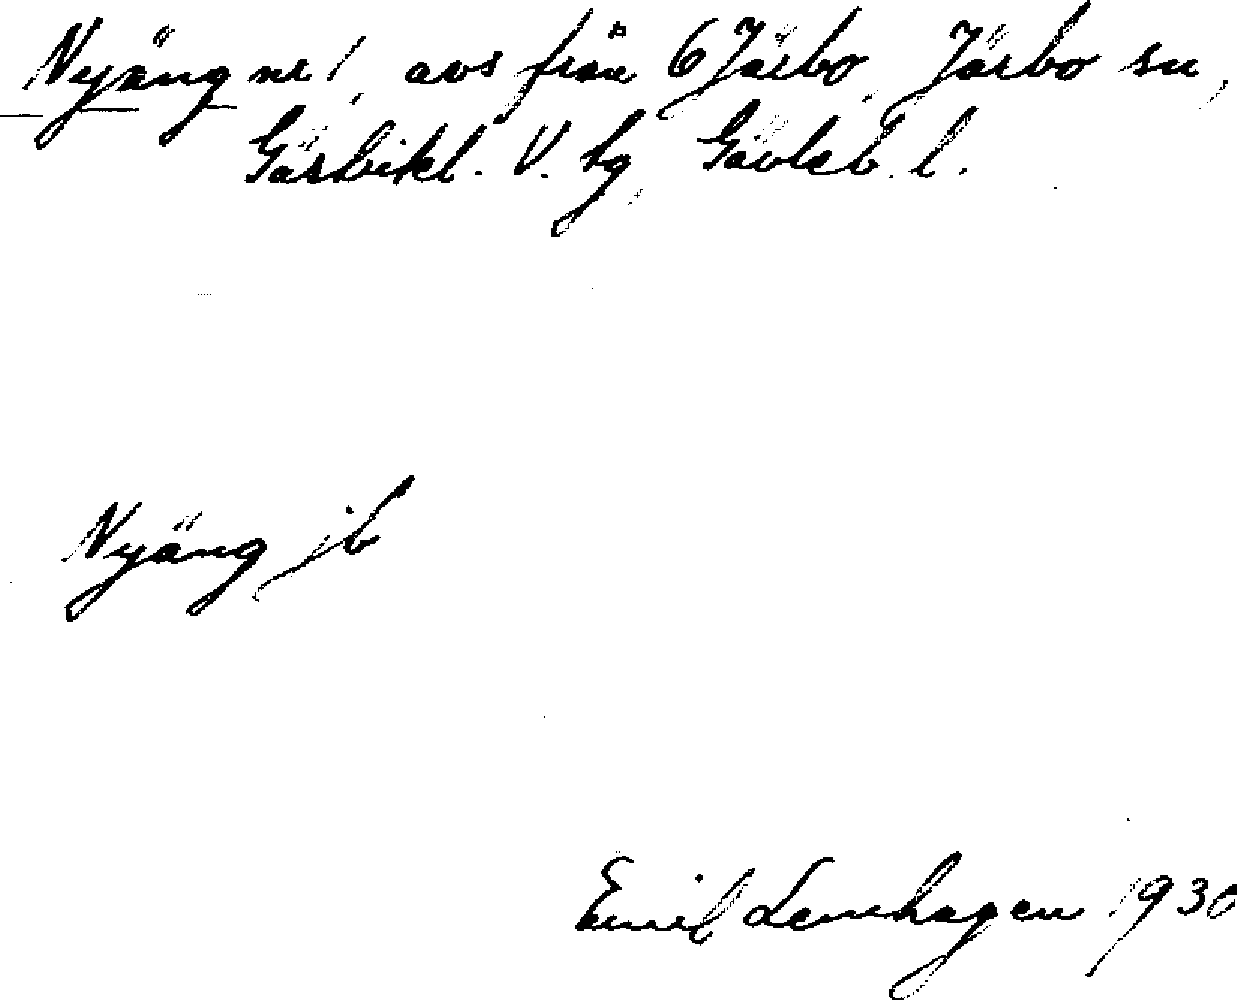 Nyäng nr 1, avs från 6 Järbo, Järbo sn,
Gästrikl. V. hg, Gävleb. l.
Nyäng jb
Emil Lenhagen 1930